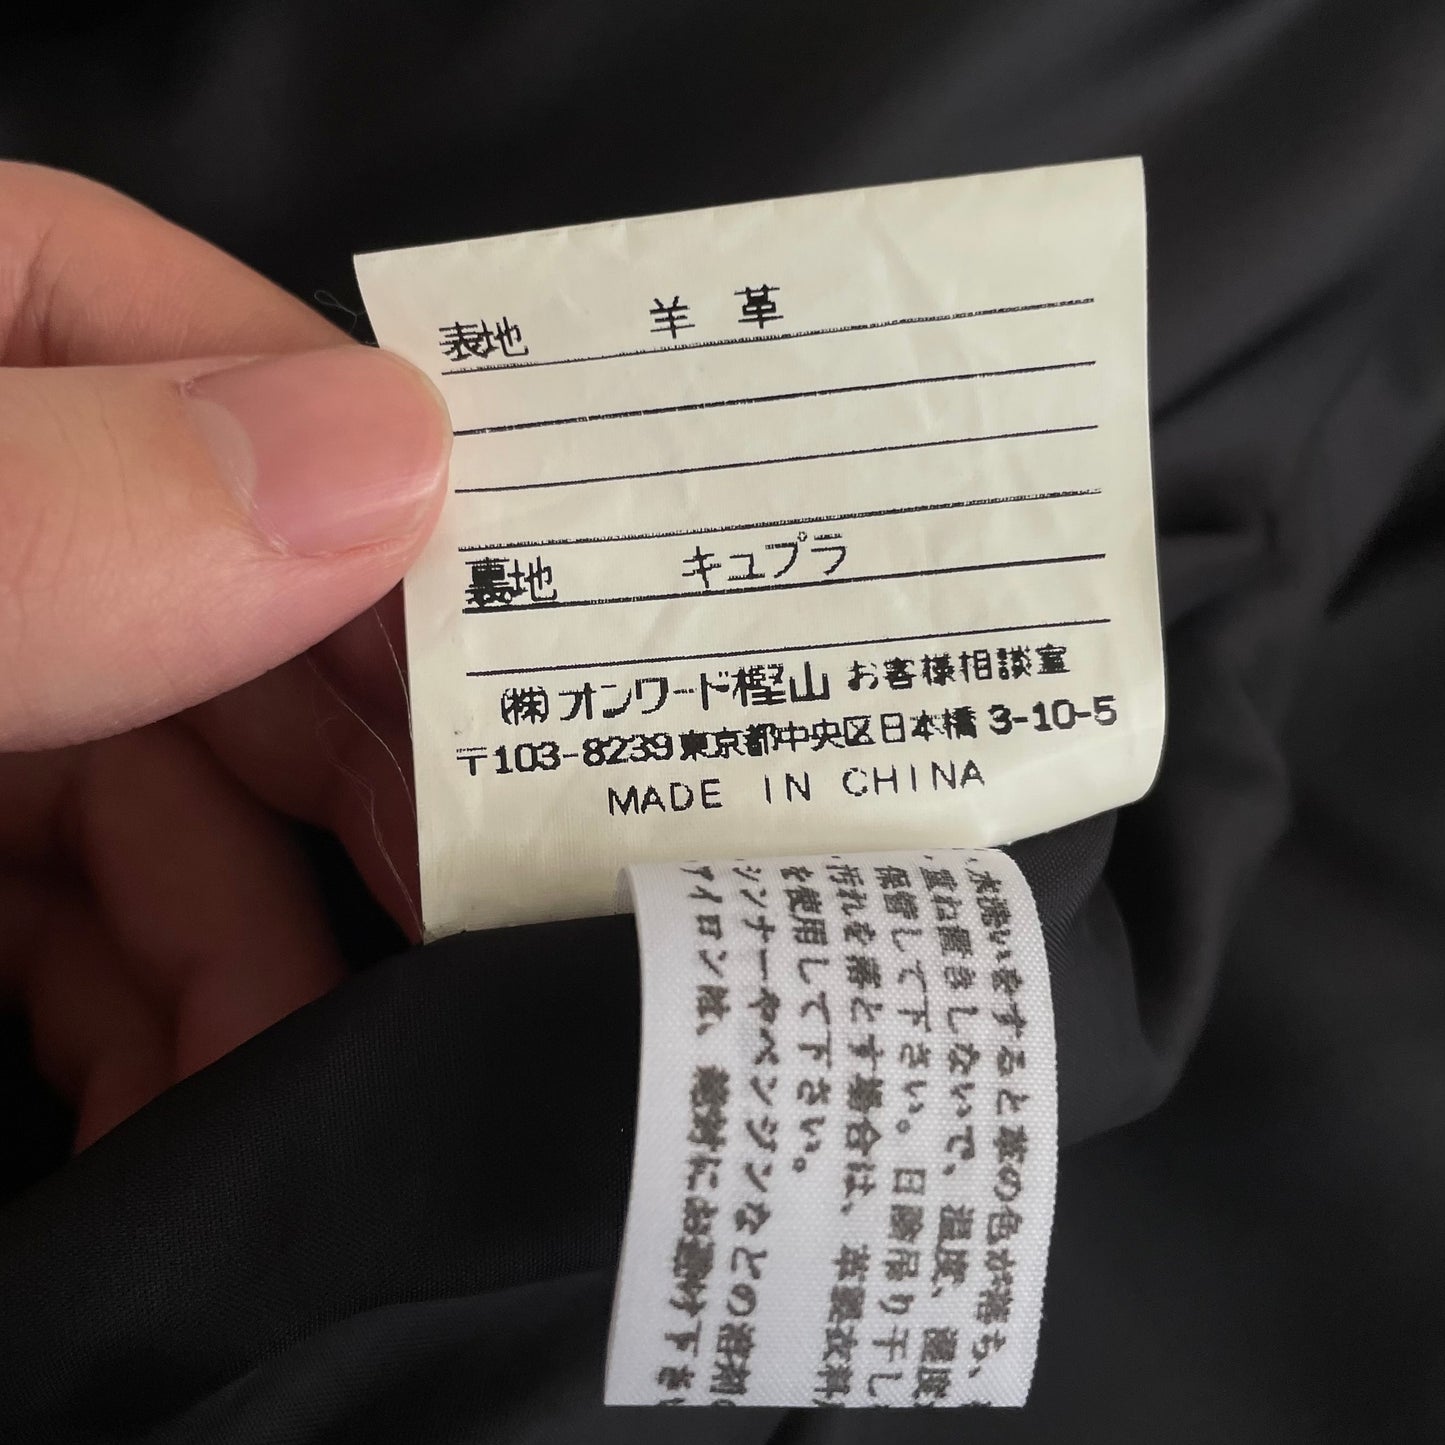 表地 羊 革
裏地 キュプラ
(株)オンワード樫山 お客様相談室
〒103-8239 東京都中央区日本橋 3-10-5
MADE IN CHINA
水洗いをすると革の色が落ち、
重ね置きしないで、温度、湿度
保管して下さい。日陰吊り干し
汚れを落とす場合は、革製衣料
を使用して下さい。
シンナーやベンジンなどの溶剤
アイロンは、絶対にお避け下さい